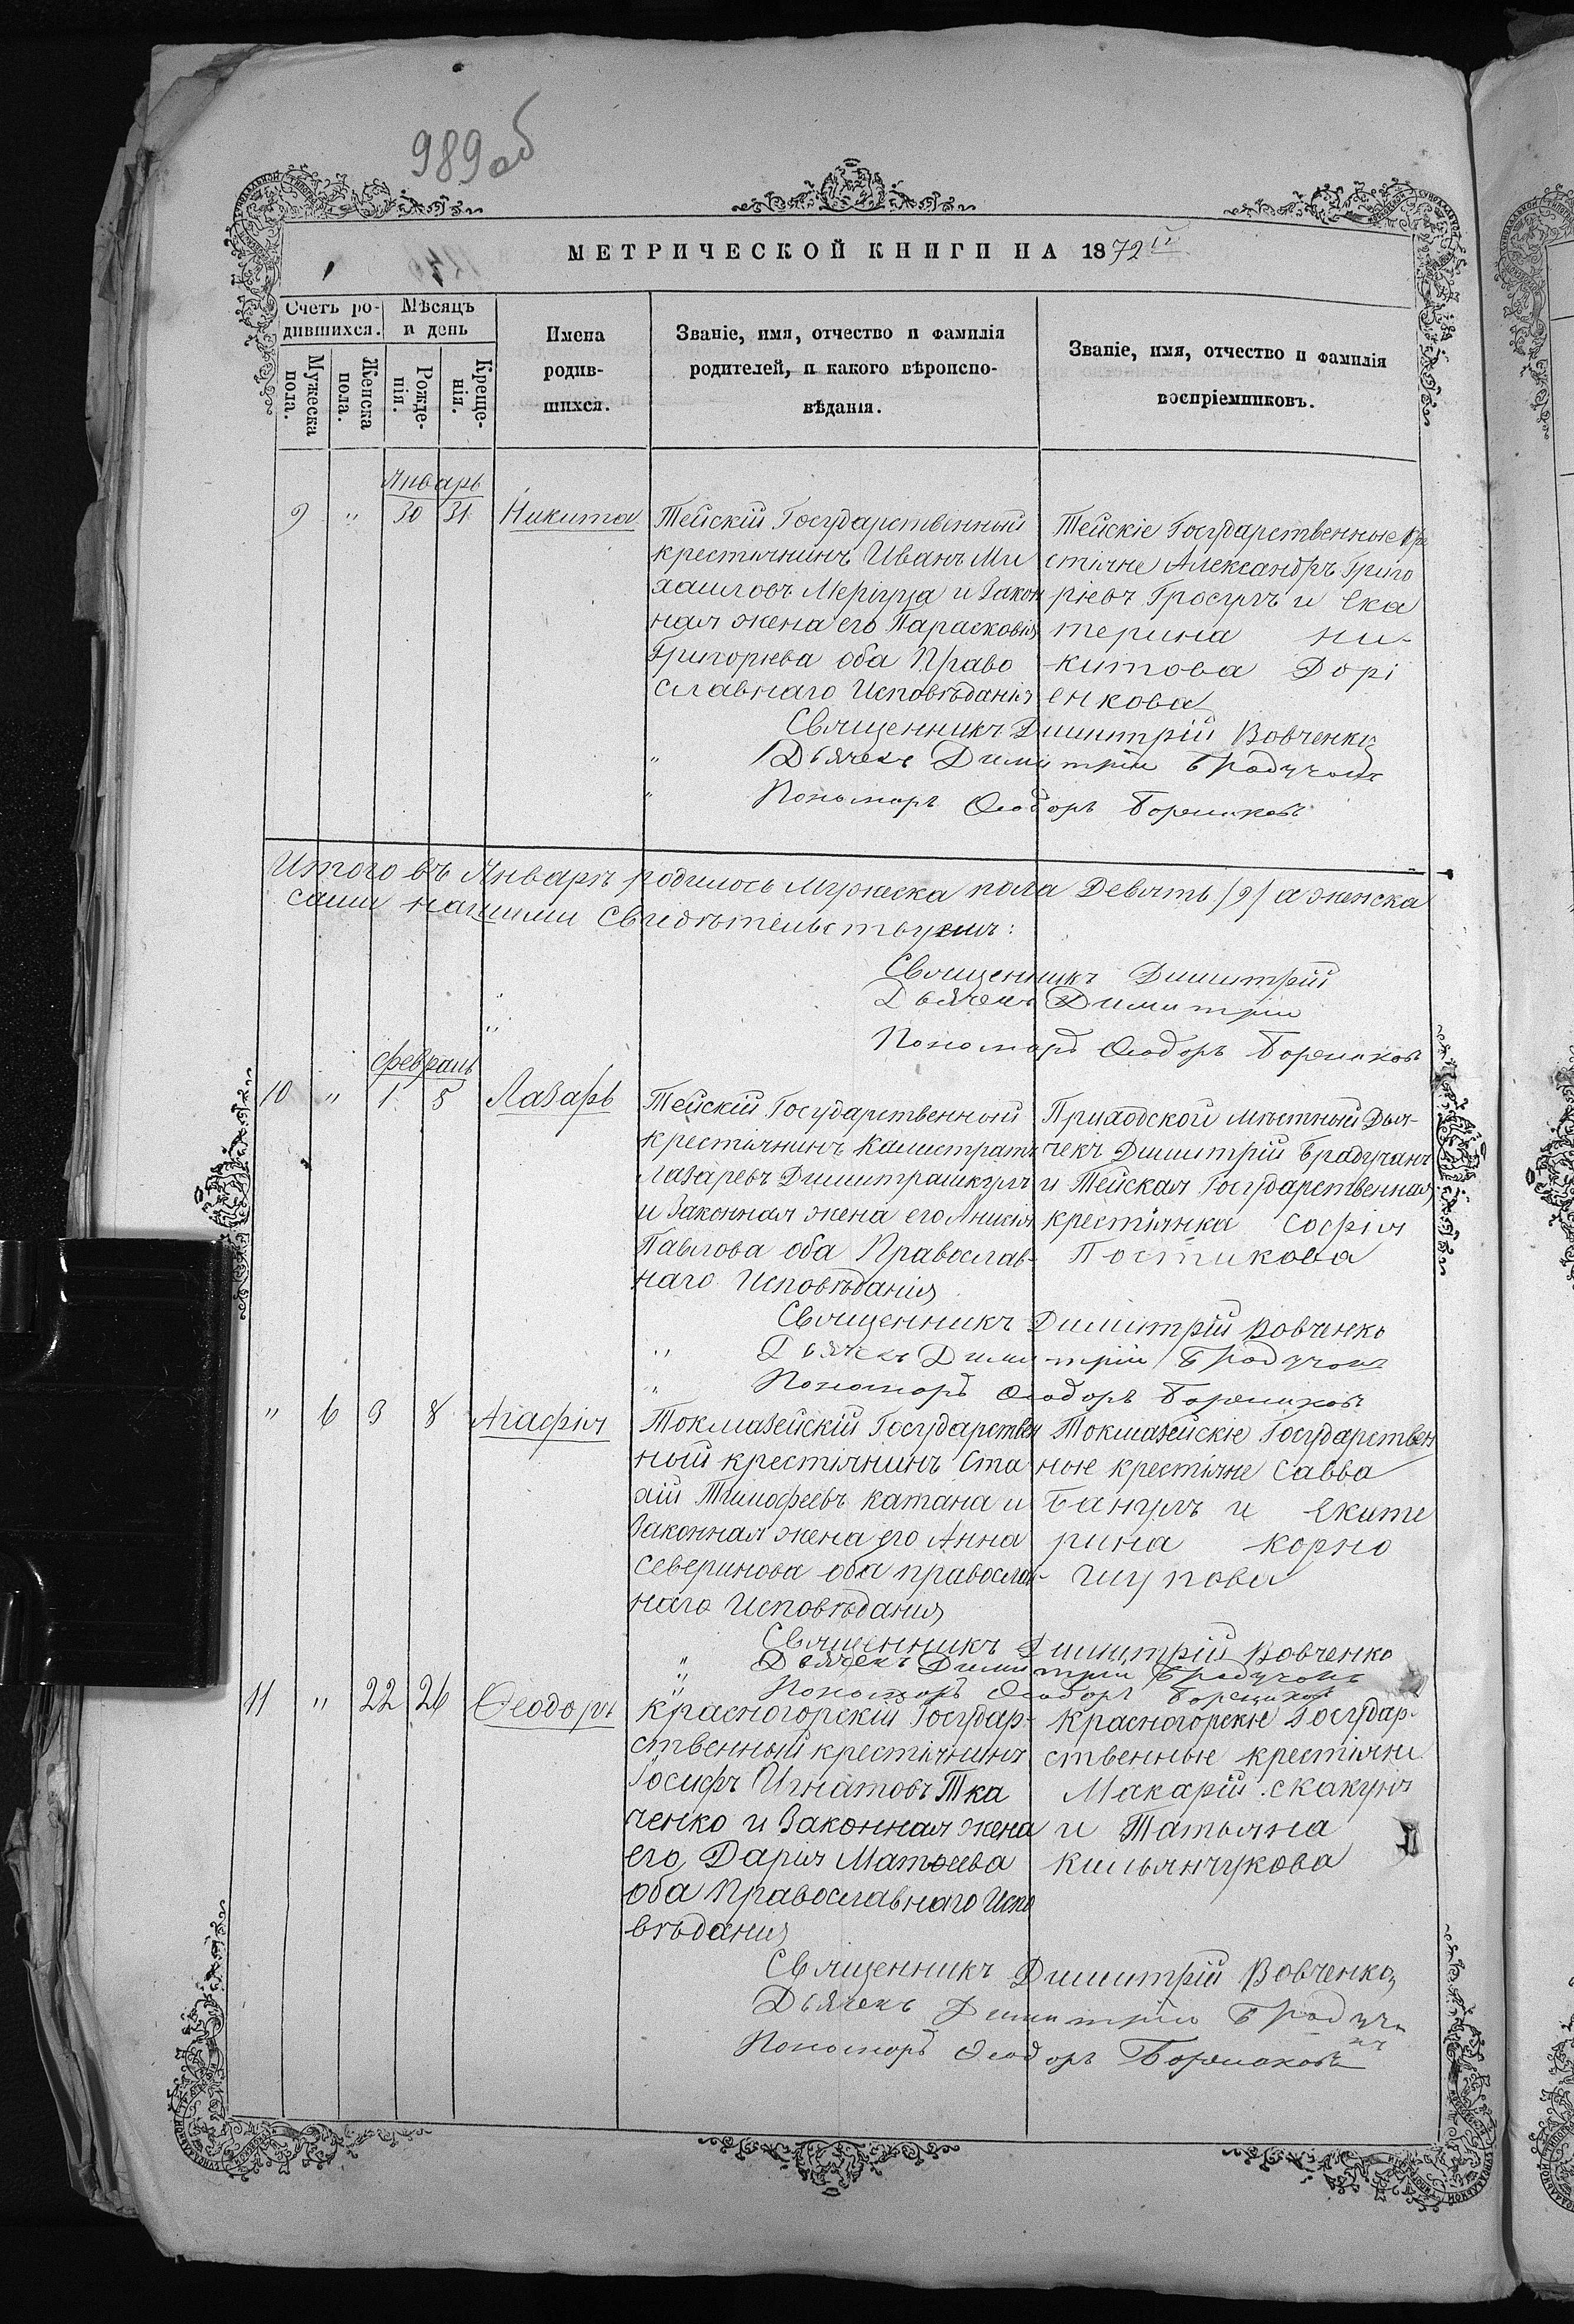 989 об
МЕТРИЧЕСКОЙ КНИГИ НА 1872й
Счетъ ро-
дившихся.
Мѣсяцъ
и день
Мужеска
пола.
Женска
пола.
Рожде-
нія.
Креще-
нія.
Имена
родив-
шихся.
Званіе, имя, отчество и фамилія
родителей, и какого вѣроиспо-
вѣданія.
Званіе, имя, отчество и фамилія
воспріемниковъ.
Январь
9 " 30 31 Никита
Тейскій Государственный
крестьянинъ Иванъ Ми
хаиловъ Мерігуца и Закон
ная жена его Парасковія
Григорьева оба Право
славнаго Исповѣданія
Тейскіе Государственные кре
стьяне Александръ Григо
рьевъ Гросулъ и Ека
терина Ни-
китова Дорі
енкова
Священникъ Димитрій Вовченко
" Дьячекъ Димитрій Брадучанъ
" Пономарь Ѳеодоръ Борешковъ
Итого въ Январѣ родилось Мужеска пола Девять /9/ а женска
Священникъ Димитрій
" Дьячекъ Димитрій
" Пономарь Ѳеодоръ Борешковъ
Февраль
10 " 1 5 Лазарь
Тейскій Государственный
крестьянинъ Калистратъ
Лазаревъ Димитрашкулъ
и Законная жена его Анисія
Павлова оба Православ-
наго Исповѣданія
Приходской мѣстный Дья-
чекъ Димитрій Брадучанъ
и Тейская Государственная
крестьянка Софія
Постикова
Священникъ Димитрій Вовченко
" Дьячекъ Димитрій Брадучанъ
" Пономарь Ѳеодоръ Борешковъ
" 6 3 8 Агафія
Токмазейскій Государствен
ный крестьянинъ Ста
хій Тимофеевъ Катана и
Законная жена его Анна
Северинова оба православ-
наго Исповѣданія
Токмазейскіе Государствен
ные крестьяне Савва
Банулъ и Екате
рина Корно
Священникъ Димитрій Вовченко
" Дьячекъ Димитрій Брадучанъ
" Пономарь Ѳеодоръ Борешковъ
11 " 22 26 Ѳеодоръ
Красногорскій Государ-
ственный крестьянинъ
Іосифъ Игнатовъ Тка
ченко и Законная жена
его, Дарія Матѳеева
оба Православнаго Испо
вѣданія
Красногорскіе Государ-
ственные крестьяне
Макарій Скакунъ
и Татьяна
Кильянчукова
Священникъ Димитрій Вовченко
Дьячекъ Димитрій Брадуча
нъ
Пономарь Ѳеодоръ Борешковъ